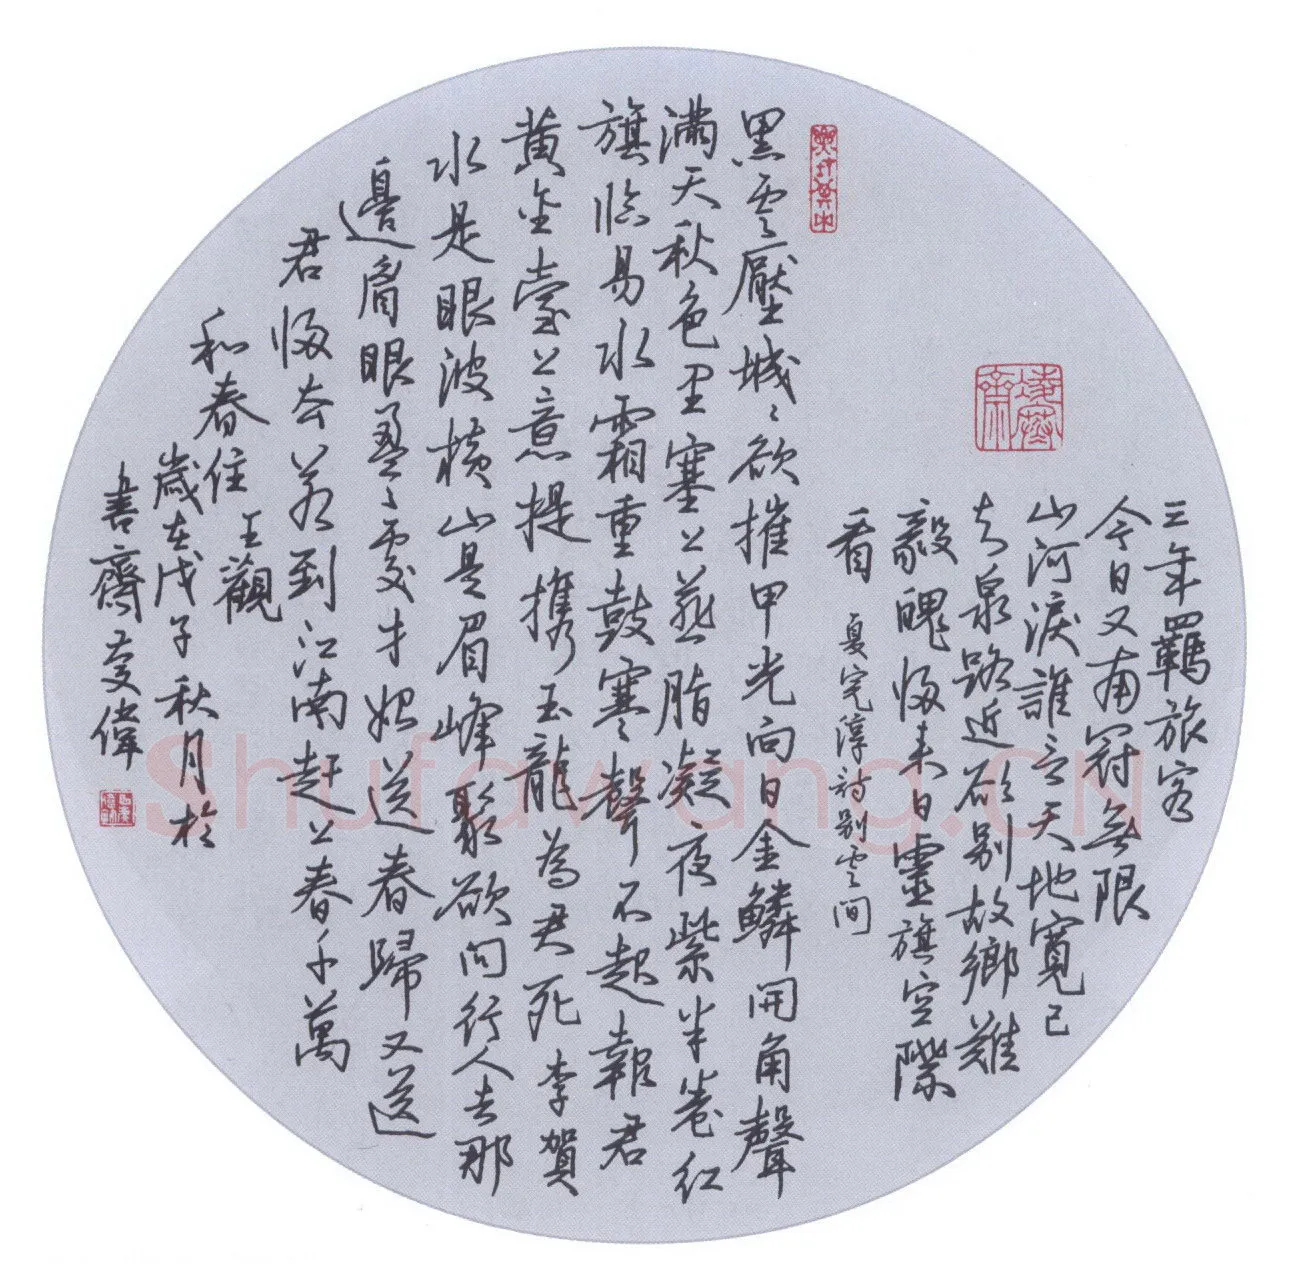 三年羈旅客
今日又南冠無限
山河淚誰言天地寬已
知泉路近欲別故鄉難
毅魄歸來日靈旗空際
看 夏完淳詩別雲間
黑雲壓城々欲摧甲光向日金鱗開角聲
滿天秋色里塞上燕脂凝夜紫半卷紅
旗臨易水霜重鼓寒聲不起報君
黃金臺上意提攜玉龍為君死李賀
水是眼波橫山是眉峰聚欲問行人去那
邊眉眼盈々處才始送春歸又送
君歸去若到江南趕上春千萬
和春住 王觀
歲在戊子秋月於
書齋 偉
Shufawang.CN